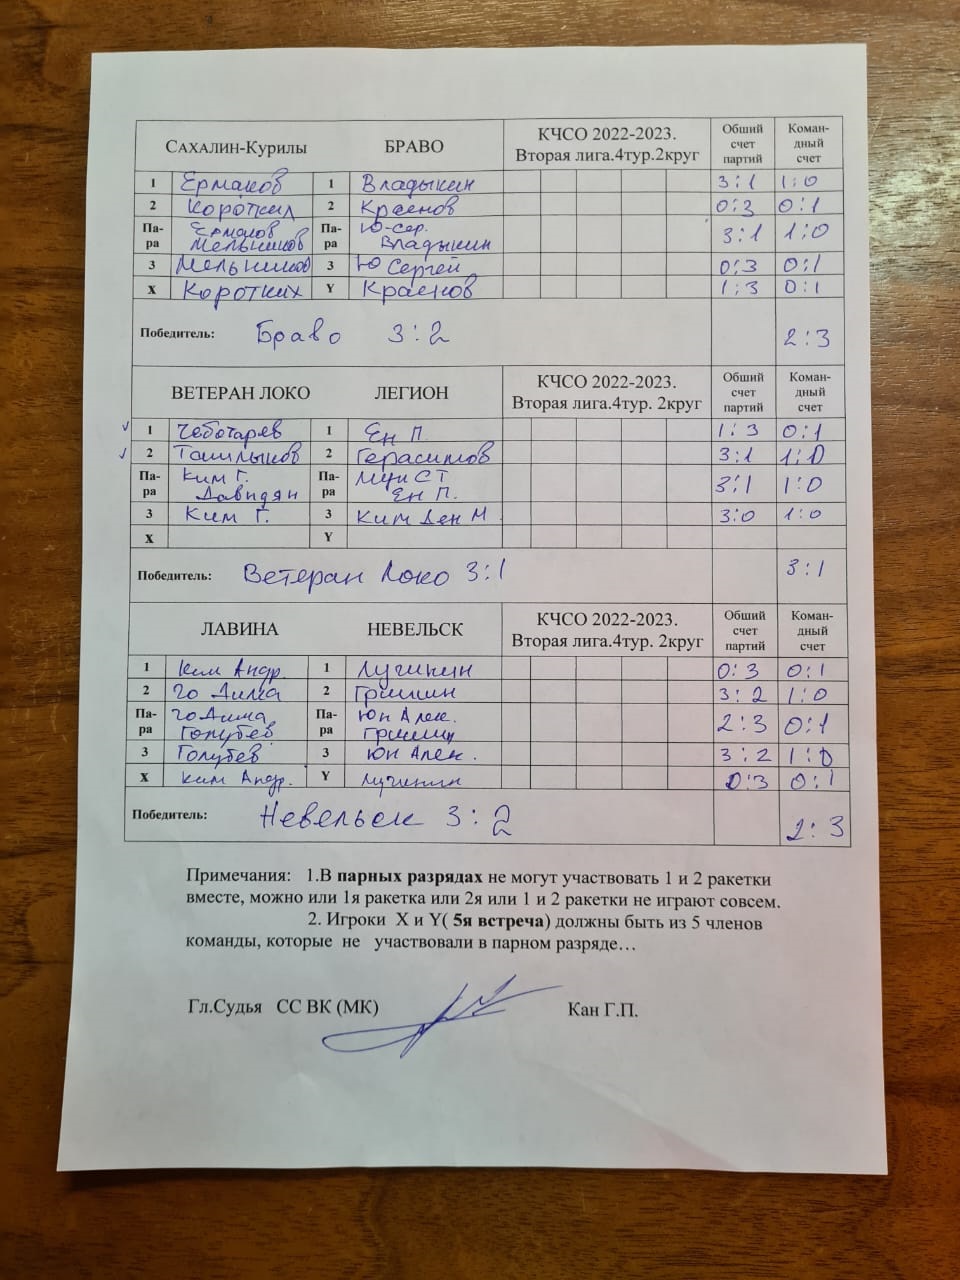 САХАЛИН-КУРИЛЫ БРАВО КЧСО 2022-2023. Вторая лига.4тур.2круг Обший счет партий Коман-дный счет
1 Ермаков 1 Владыкин 3:1 1:0
2 Коротких 2 Краснов 0:3 0:1
Па-ра Ермаков Мельников Па-ра Ю-сер. Владыкин 3:1 1:0
3 Мельников 3 Ю Сергей 0:3 0:1
X Коротких Y Краснов 1:3 0:1
Победитель: Браво 3:2 2:3
ВЕТЕРАН ЛОКО ЛЕГИОН КЧСО 2022-2023. Вторая лига.4тур. 2круг Обший счет партий Коман-дный счет
1 Чеботарев 1 Ен П. 1:3 0:1
2 2 Герасимов 3:1 1:0
Па-ра Ким Г. Давидян Па-ра Ен П. 3:1 1:0
3 Ким Г. 3 Ким Ден М 3:0 1:0
X Y
Победитель: Ветеран Локо 3:1 3:1
ЛАВИНА НЕВЕЛЬСК КЧСО 2022-2023. Вторая лига.4тур. 2круг Обший счет партий Коман-дный счет
1 Ким Андр. 1 Лучинин 0:3 0:1
2 Го Дима 2 Гришин 3:2 1:0
Па-ра Го Дима Голубев Па-ра Юн Алек. Гришин 2:3 0:1
3 Голубев 3 Юн Алек. 3:2 1:0
X Ким Андр. Y Лучинин 0:3 0:1
Победитель: Невельск 3:2 2:3
Примечания: 1.В парных разрядах не могут участвовать 1 и 2 ракетки
вместе, можно или 1я ракетка или 2я или 1 и 2 ракетки не играют совсем.
2. Игроки X и Y( 5я встреча) должны быть из 5 членов
команды, которые не участвовали в парном разряде…
Гл.Судья СС ВК (МК) Кан Г.П.